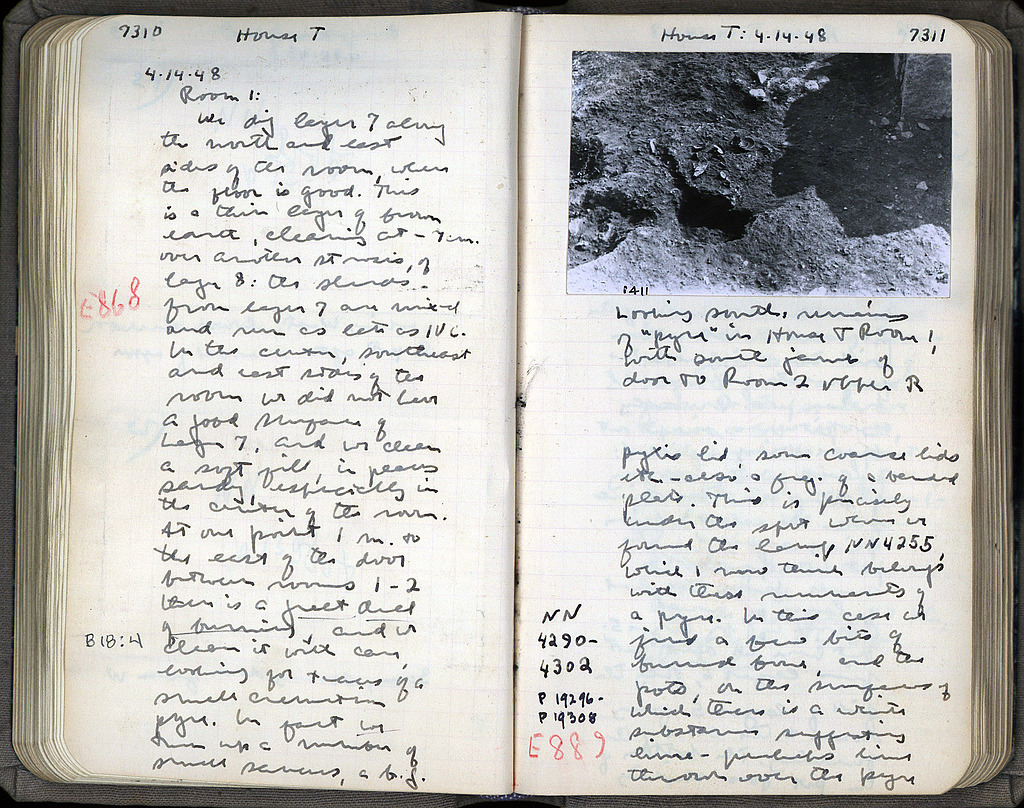 7310 House T
4-14-48
Room 1:
We dig layer 7 along
the north and east
sides of the room, where
the floor is good. This
is a thin layer of brown
earth, clearing at - 7 cm.
over another strosis, of
layer 8: the sherds
E868
from layer 7 are mixed
and run as late as IV C.
In the center, southeast
and east sides of the
room we did not have
a good surface of
layer 7, and we clean
a soft fill, in places
sandy, especially in
the center of the room.
At one point 1 m. to
the east of the door
between rooms 1-2
there is a great deal
of burning, and we
B18:4
clean it with care,
looking for traces of a
small cremation
pyre. In fact we
turn up a number of
small saucers, a b.g.
House T: 4-14-48 7311
1411
Looking south, remains
of "pyre" in House T Room 1,
with south jamb of
door to Room 2 upper R
pyxis lid, some coarse lids
etc - also a frag. of a
plate. This is precisely
under the spot where we
found the lamp NN4255,
which I now think belongs
with these remnants of
a pyre. In this case we
find a few bits of
burned bone, and the
pots, on the surfaces of
which there is a white
substance suggesting
lime - perhaps lime
thrown over the pyre
NN
4290-
4302
P 19296-
P 19308
E889